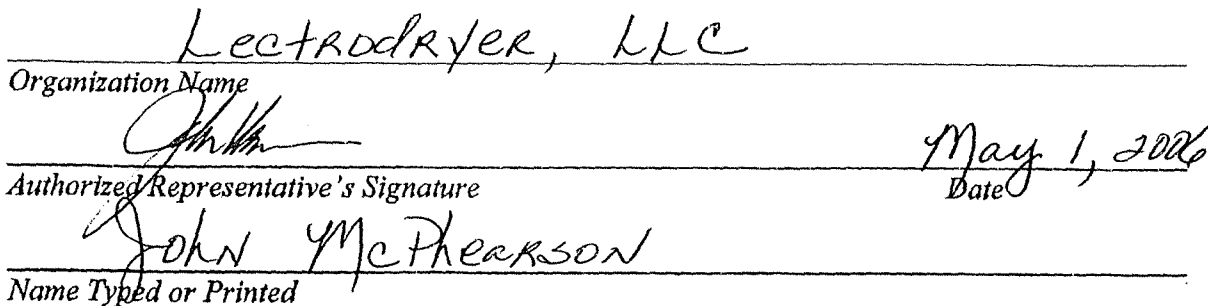 Lectrodryer, LLC
Organization Name
May 1, 2006
Authorized Representative's Signature Date
John McPhearson
Name Typed or Printed